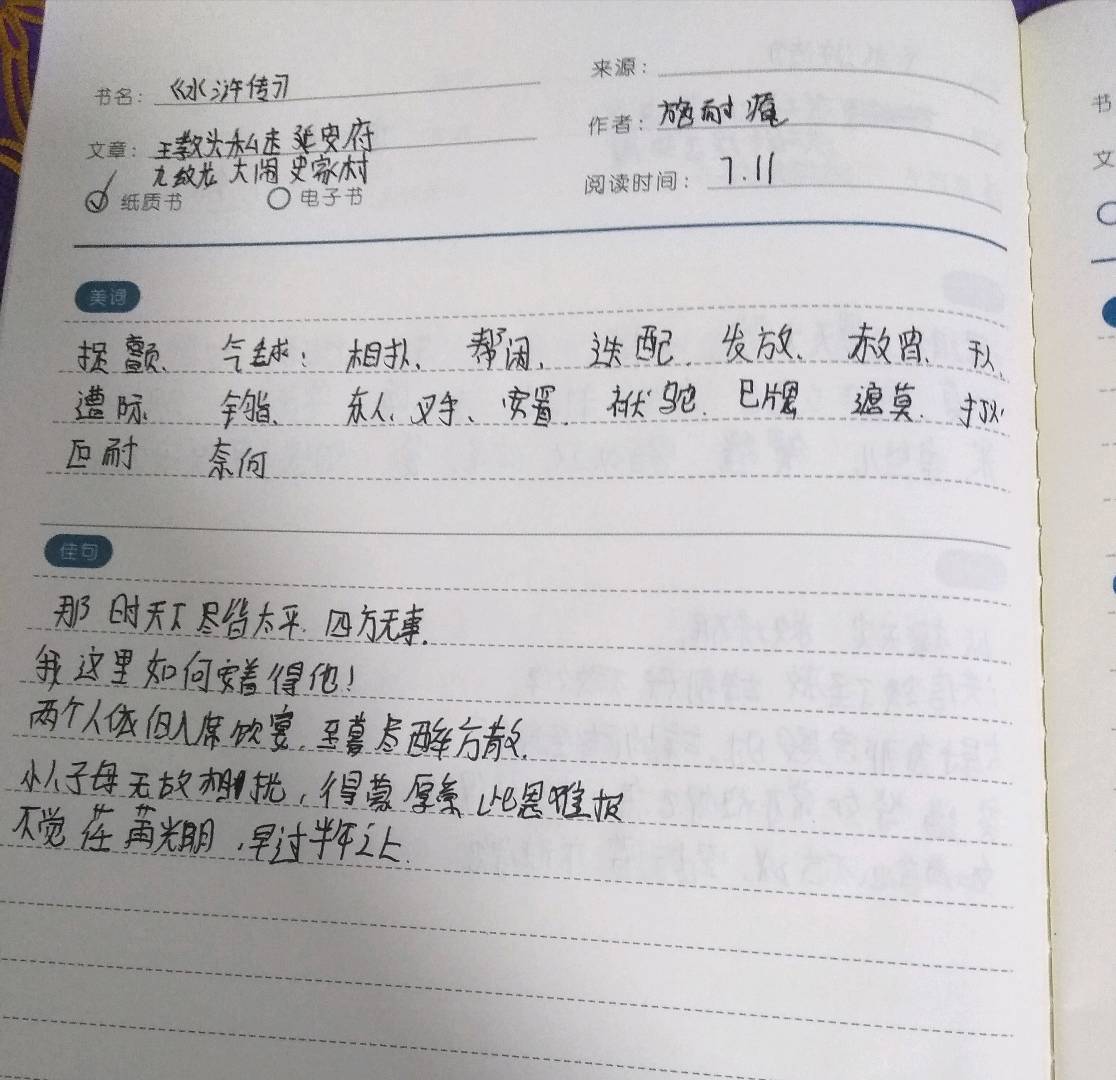 书名：《水浒传》
来源：
文章：王教头私走延安府
作者：施耐庵
九纹龙大闹史家村
阅读时间：7.11
纸质书 电子书
美词
气毬：相扑、帮闲、迭配、发放、赦宥、
遭际 众人、叉手、安置、 巴牌
叵耐 奈何
佳句
那时天下尽皆太平、四方无事.
我这里如何安着得他！
两个人依旧入席饮宴，至暮尽醉方散.
小人子母无故相扰，得蒙厚意 此恩难报
不觉荏苒光阴，早过半年之上.
书
文